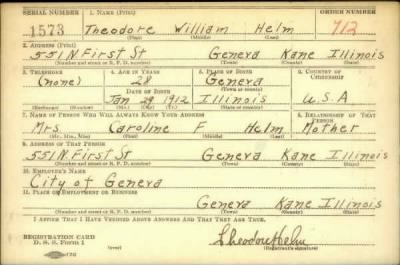 SERIAL NUMBER 1. NAME (Print) ORDER NUMBER
1573 Theodore William Helm 712
(First) (Middle) (Last)
2. ADDRESS (Print)
551 N. First St Geneva Kane Illinois
(Number and street or R. F. D. number) (Town) (County) (State)
3. TELEPHONE 4. AGE IN YEARS 5. PLACE OF BIRTH 6. COUNTRY OF CITIZENSHIP
(none) 28 Geneva
DATE OF BIRTH (Town or county)
Jan 29 1912 Illinois U.S.A
(Exchange) (Number) (Mo.) (Day) (Yr.) (State or country)
7. NAME OF PERSON WHO WILL ALWAYS KNOW YOUR ADDRESS 8. RELATIONSHIP OF THAT PERSON
Mrs Caroline F Helm Mother
(Mr., Mrs., Miss) (First) (Middle) (Last)
9. ADDRESS OF THAT PERSON
551 N. First St Geneva Kane Illinois
(Number and street or R. F. D. number) (Town) (County) (State)
10. EMPLOYER'S NAME
City of Geneva
11. PLACE OF EMPLOYMENT OR BUSINESS
Geneva Kane Illinois
(Number and street or R. F. D. number) (Town) (County) (State)
I AFFIRM THAT I HAVE VERIFIED ABOVE ANSWERS AND THAT THEY ARE TRUE.
REGISTRATION CARD
D. S. S. Form 1 Theodore Helm
(over) (Registrant's signature)